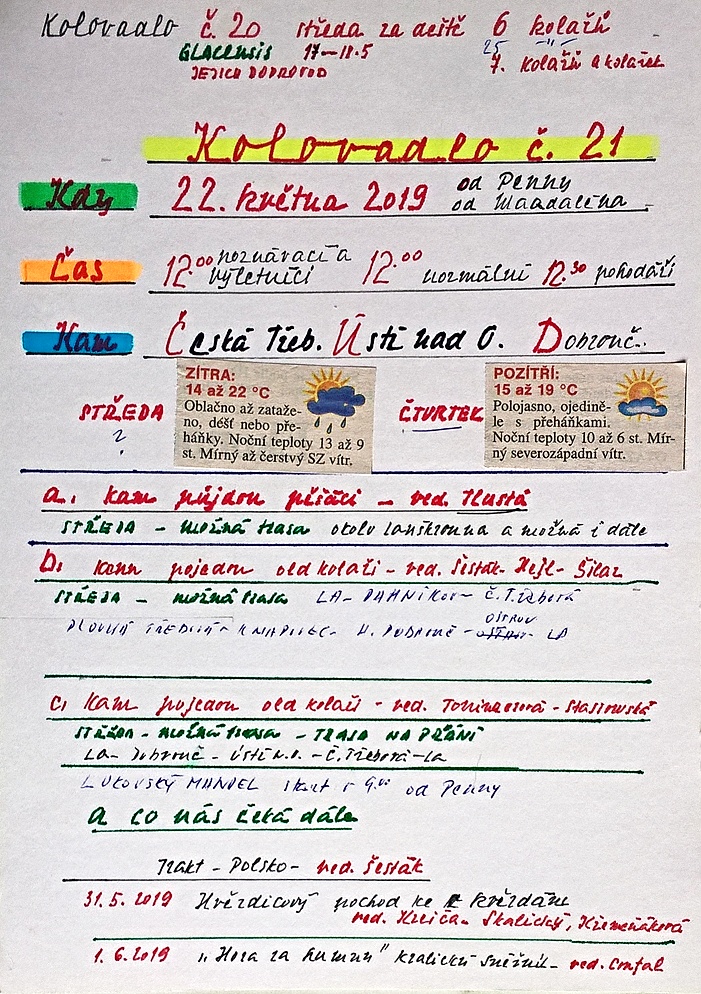 Kolovadlo č. 20 středa za deště 6 kolařů
GLACENSIS 17-18.5 25
JEJICH DOPROVOD 7. kolařů a kolařek
Kolovadlo č. 21
Kdy 22. května 2019 od Penny
od Magdaléna
Čas 12.00 poznávací a
výletníci 12.00 normální 12.30 pohodáři
Kam Česká Třeb. Ústí nad O. Dobrouč.
ZÍTRA:
14 až 22 °C
Oblačno až zataže-
no, déšť nebo pře-
háňky. Noční teploty 13 až 9
st. Mírný až čerstvý SZ vítr.
POZÍTŘÍ:
15 až 19 °C
Polojasno, ojedině-
le s přeháňkami.
Noční teploty 10 až 6 st. Mír-
ný severozápadní vítr.
STŘEDA
?
ČTVRTEK
a. kam půjdou pěšáci - ved. Tlustá
STŘEDA - možná trasa okolo Lanškrouna a možná i dále
b. kam pojedou old kolaři - ved. Šesták- Hejl- Šilar
STŘEDA - možná trasa LA- DAMNÍKOV- Č. Třebová
H. DOBROUČ - OSTROV LA
c, kam pojedou old kolaři - ved. - Stasiowská
STŘEDA - možná trasa - TRASA NA PŘÁNÍ
LA- Dobrouč - Ústí n.o. - Č. Třebová - La
LUKOVSKÝ MANDL start v 9.00 od Penny
a co nás čeká dále
Trakt - Polsko - ved. Šesták
31.5. 2019 Hvězdicový pochod ke hvězdám
ved. Skalický, Křemenáková
1.6.2019 „Hora za humny" Kralický Sněžník - ved.